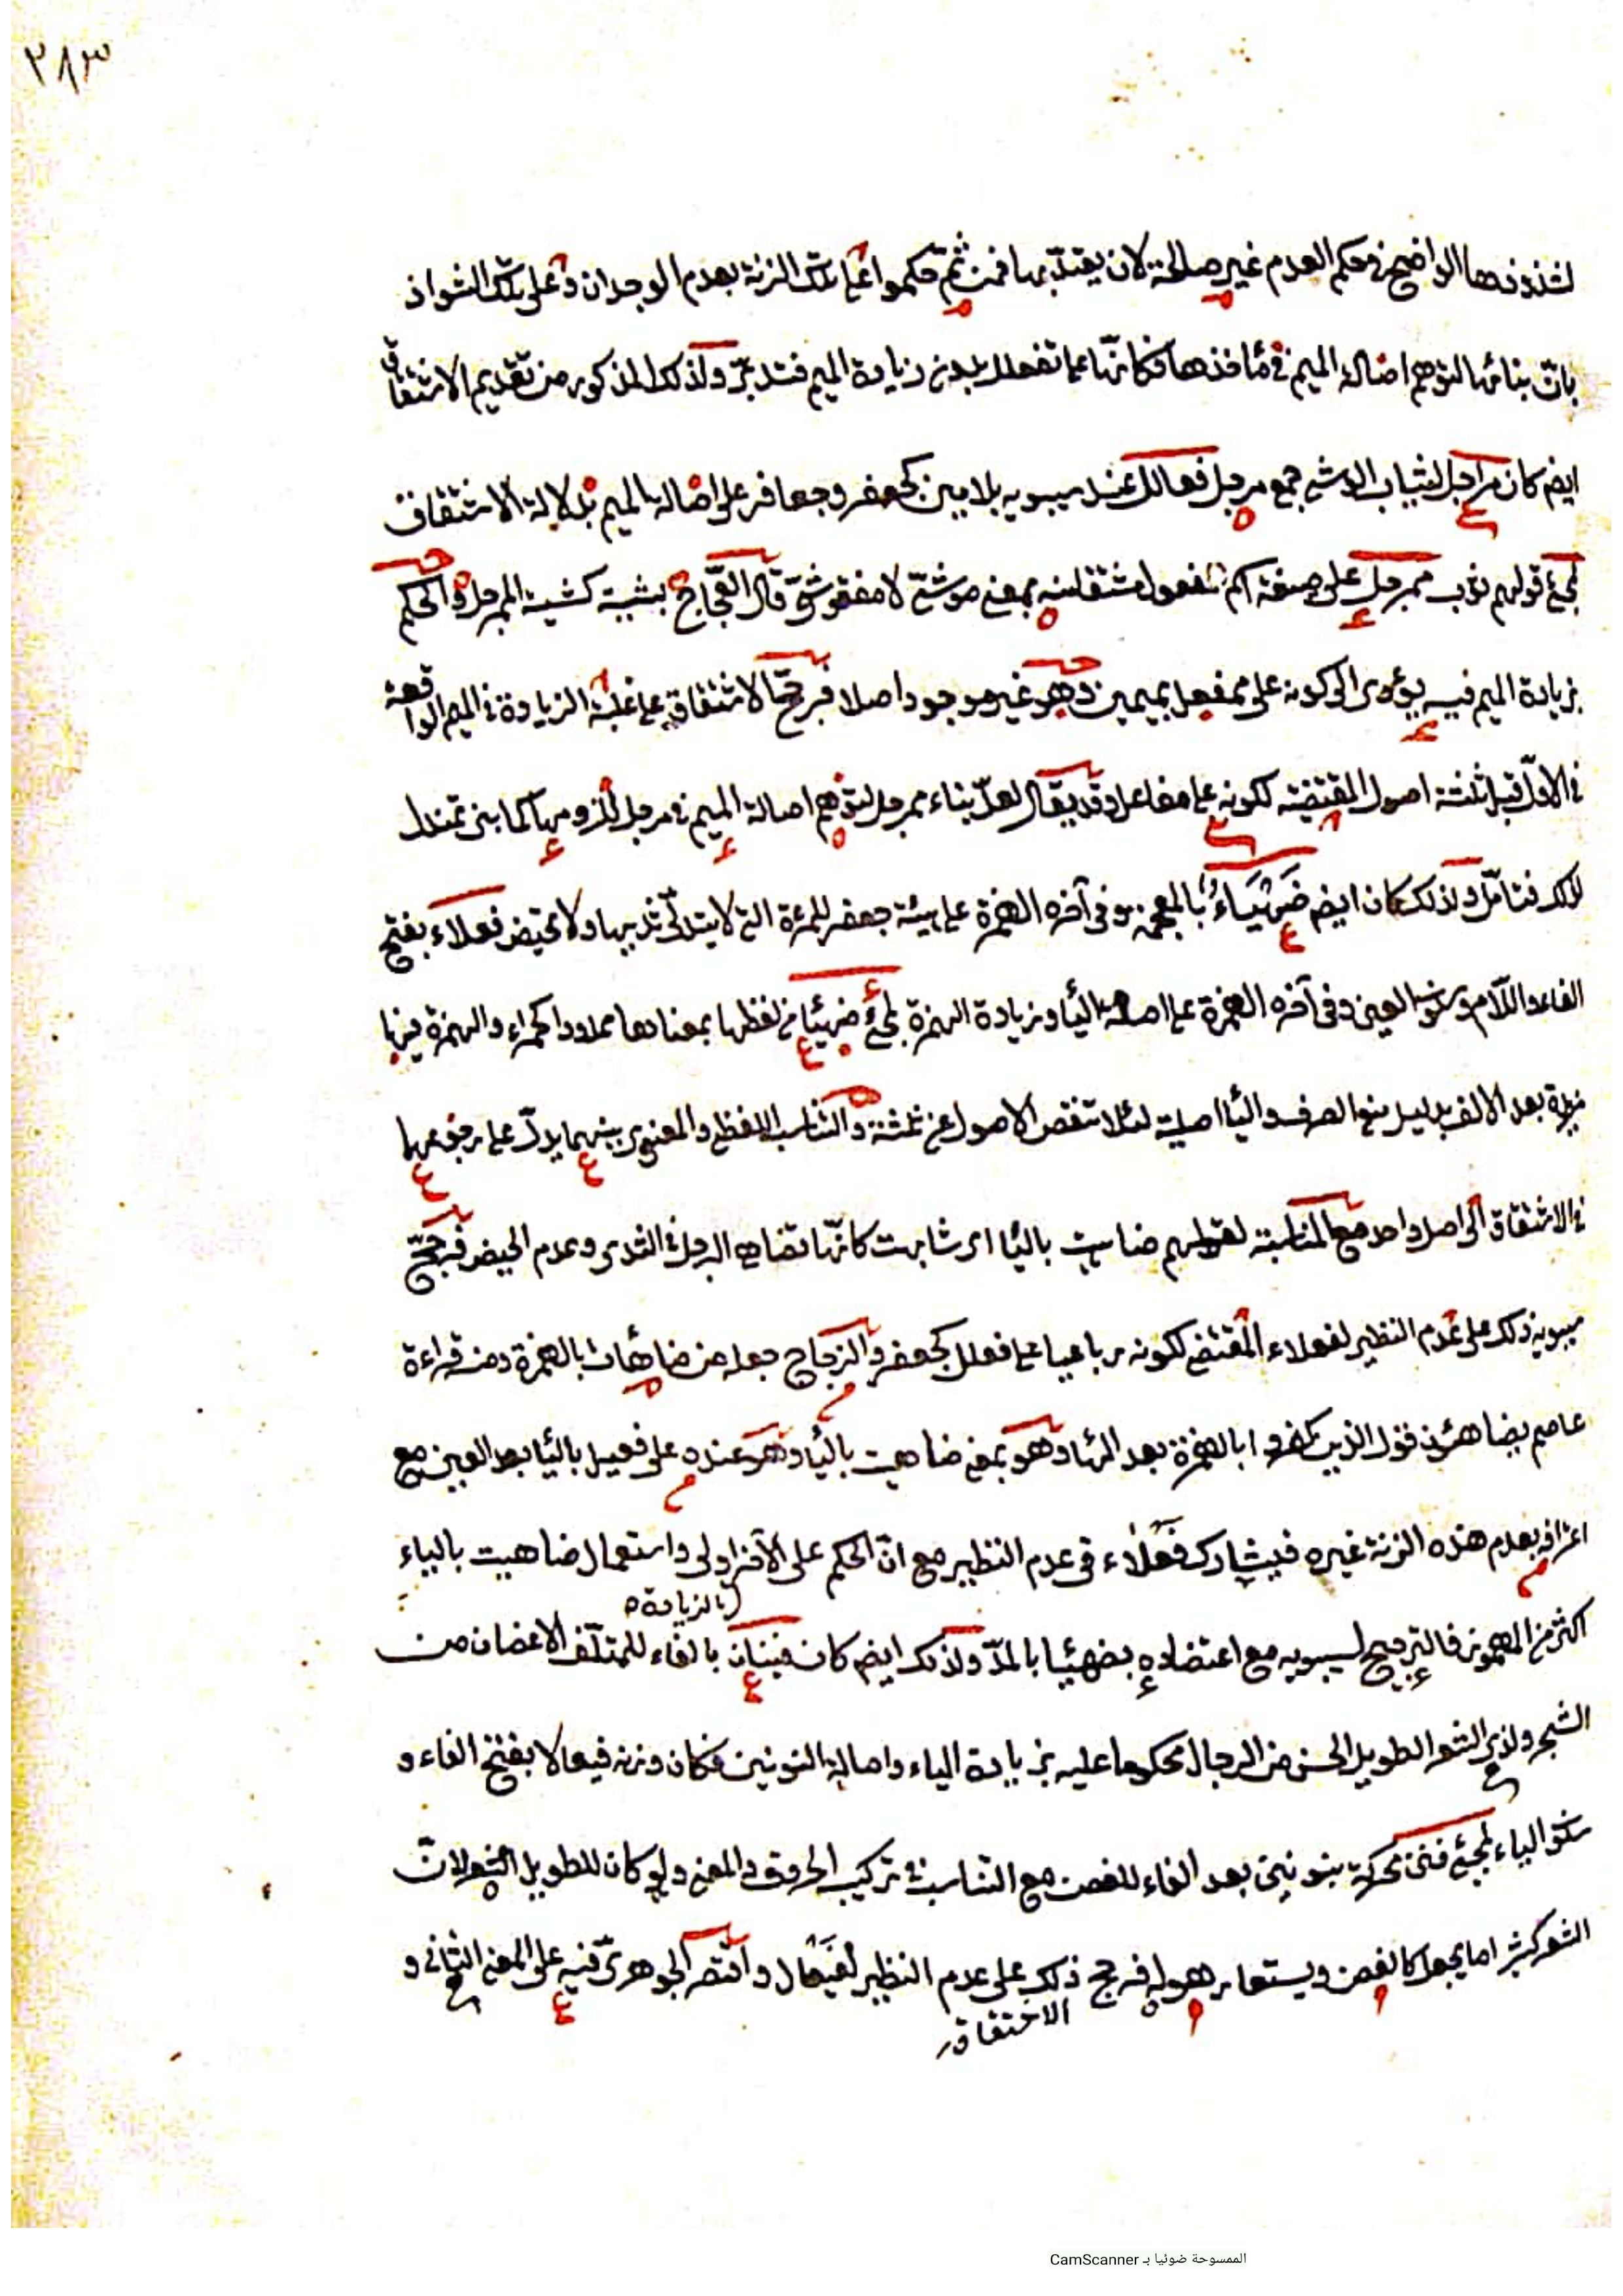 ٢٨٣
لشذوذها الواضح في حكم العدم غير صالحة لان يعتدّ بها فمن ثمّ حكموا على تلك الزنة بعدم الوجدان وعلى تلك الشواذ
بانّ بنائها لتوهم اصالة الميم في مأخذها فكانّها على تفعلل بدون زيادة الميم فتدبّر ولذلك المذكور من تقديم الاشتقاق
ايضم كان مراجل لثياب الوشي جمع مرجل فعالل عند سيبويه بلا ميين كجعفر وجعافر على اصالة الميم بدلالة الاشتقاق
لمجئ قولهم ثوب ممرجل على صيغة اسم المفعول مشتقا منه بمعنى موشّح لا مفقو شق قال العجّاج بشية كشية الممرجل والحكم
بزيادة الميم فيه يؤدى الى كونه على ممفعل بميمين وهو غير موجود اصلا فرجّح الاشتقاق على غلبة الزيادة في الميم الواقعة
في الاوّل قبل ثلثة اصول المقتضية لكونه على مفاعل وقد يقال لعلّ بناء ممرجل لتوهم اصالة الميم في مرجل للزومها كما بنى تمندل
لذلك فتامّل ولذلك كان ايضم ضَهْيَاءُ بالمعجمة وفي آخره الهمزة على هيئة جعفر للمرءة التي لا يتدلّى ثديها ولا تحيض فعلاء بفتح
الفاء واللام وسكون العين وفي آخره الهمزة على اصالة اليا وزيادة الهمزة لمجئ ضهيئا في لفظها بمعناها ممدودا كحمراء والهمزة فيها
مزيدة بعد الالف بدليل منع الصرف واليا اصلية لئلا تنقص الاصول عن ثلثة والتناسب اللفظى والمعنوى بينهما يدلّ على رجوعهما
في الاشتقاق الى اصل واحد مع المناسبة لقولهم ضاهيت باليا اى شابهت كانّها تضاهى الرجل في الثدى وعدم الحيض فرجّح
سيبويه ذلك على عدم النظير لفعلاء المقتضى لكونه رباعيا على فعلل كجعفر والزجاج جعله من ضاهأت بالهمزة ومنه قراءة
عاصم يضاهئون قول الذين كفروا بالهمزة بعد الهاء وهو بمعنى ضاهيت باليا وهو عنده على فعيل باليا بعد العين مع
اعترافه بعدم هذه الزنة غيره فيشارك فَعْلَاء في عدم النظير مع انّ الحكم على الآخر اولى واستعمال ضاهيت بالياء
بالزيادة
اكثر من المهموز فالترجيح لسيبويه مع اعتضاده بضهيئا بالمدّ ولذلك ايضم كان فينان بالفاء للملتفّ الاغصان من
الشجر ولذى الشعر الطويل الحسن من الرجال محكوما عليه بزيادة الياء واصالة النونين فكان وزنه فيعالا بفتح الفاء و
سكون الياء لمجئ فنن محركة بنونين بعد الفاء للغصن مع التناسب في تركيب الحروف والمعنى ولو كان للطويل الشعر لانّ
الشعر كثيرا ما يجعل كالغصن ويستعار هو له فرجح ذلك على عدم النظير لفَيْعَال واقتصر الجوهرىّ فيه على المعنى الثانى و
الاشتقاق
الممسوحة ضوئيا بـ CamScanner